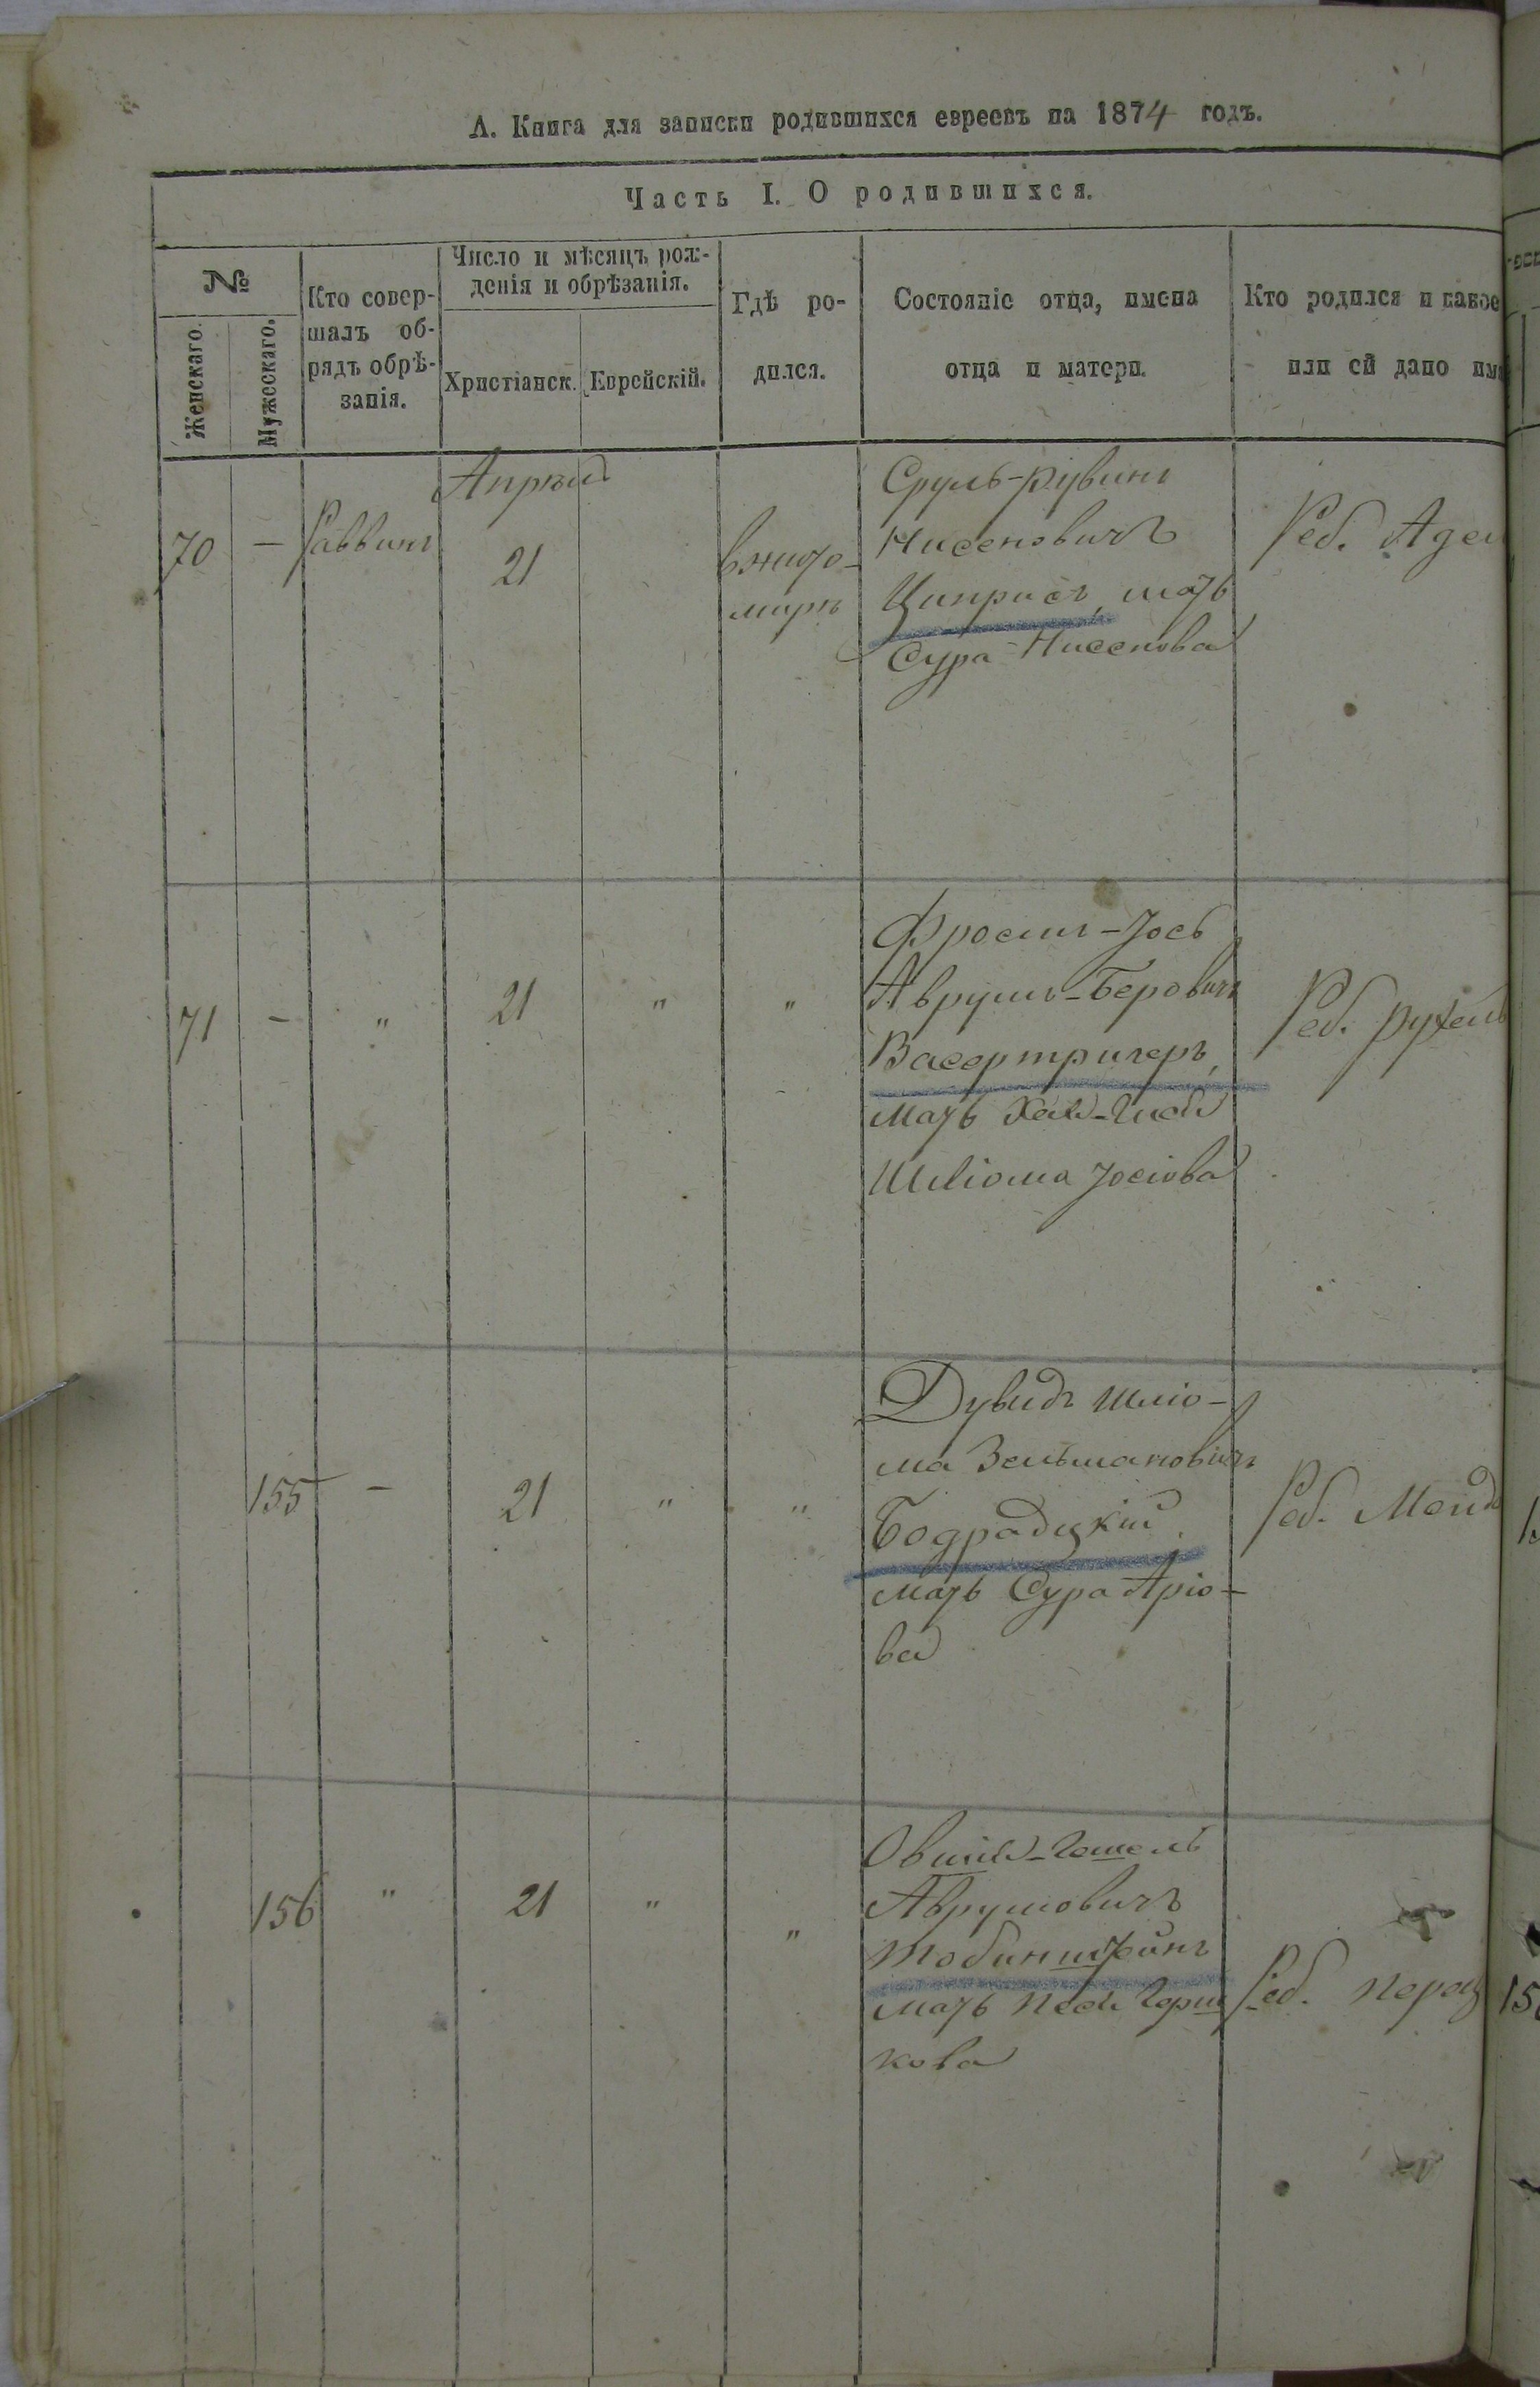 А. Книга для записки родившихся евреевъ на 1874 годъ.
Часть I. О родившихся.
№
Женскаго.
Мужескаго.
Кто совер-
шалъ об-
рядъ обрѣ-
занія.
Число и мѣсяцъ рож-
денія и обрѣзанія.
Христіанск.
Еврейскій.
Гдѣ ро-
дился.
Состояніе отца, имена
отца и матери.
Кто родился и какое
или ей дано
Апрѣля
70 — Раввинъ 21
в Жито-
мирѣ
Сруль-Рувинъ
Нисеновичъ
Циприсъ, мать
Сура Нисенова
Реб.
71 — " 21 " "
Фроимъ-Іось
Аврумъ-Беровичъ
Васертригеръ,
мать
Шліома Іосіова
Реб. Рухель
155 — 21 " "
Дувидъ Шліо-
ма Зельмановичъ
Бодрадцкій.
мать Сура Аріо-
ва
Реб.
156 " 21 " "
Овшій-Гешель
Аврумовичъ
Тобинштейнъ
мать Герш
кова
Реб. Перец
15